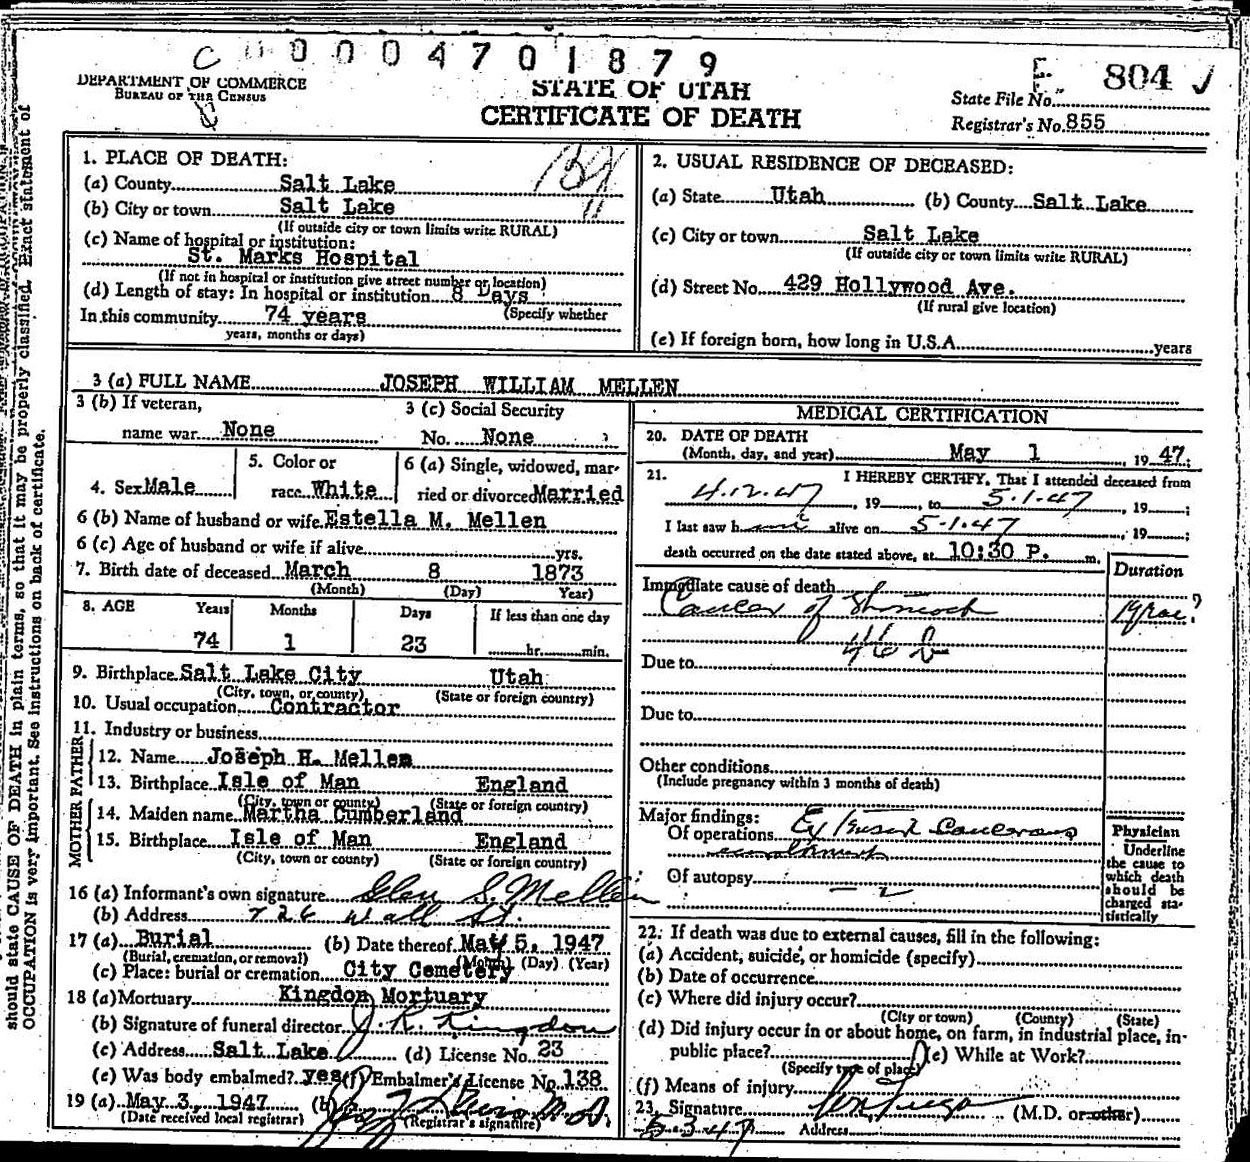 C 0 0 0 0 4 7 0 1 8 7 9
DEPARTMENT OF COMMERCE
BUREAU OF THE CENSUS
STATE OF UTAH
CERTIFICATE OF DEATH
804
State File No.
Registrar's No. 855
should state CAUSE OF DEATH in plain terms, so that it may be properly classified. Exact statement of
OCCUPATION is very important. See instructions on back of certificate.
1. PLACE OF DEATH:
(a) County Salt Lake
(b) City or town Salt Lake
(If outside city or town limits write RURAL)
(c) Name of hospital or institution:
St. Marks Hospital
(If not in hospital or institution give street number or location)
(d) Length of stay: In hospital or institution 8 Days
(Specify whether
In this community 74 years
years, months or days)
2. USUAL RESIDENCE OF DECEASED:
(a) State Utah (b) County Salt Lake
(c) City or town Salt Lake
(If outside city or town limits write RURAL)
(d) Street No. 429 Hollywood Ave.
(If rural give location)
(e) If foreign born, how long in U.S.A. years
3 (a) FULL NAME JOSEPH WILLIAM MELLEN
3 (b) If veteran,
name war None
3 (c) Social Security
No. None
4. Sex Male
5. Color or
race White
6 (a) Single, widowed, mar-
ried or divorced Married
6 (b) Name of husband or wife Estella M. Mellen
6 (c) Age of husband or wife if alive yrs.
7. Birth date of deceased March 8 1873
(Month) (Day) Year)
8. AGE Years Months Days If less than one day
74 1 23 hr. min.
9. Birthplace Salt Lake City Utah
(City, town, or county) (State or foreign country)
10. Usual occupation Contractor
11. Industry or business
FATHER
12. Name Joseph H. Mellen
13. Birthplace Isle of Man England
(City, town or county) (State or foreign country)
MOTHER
14. Maiden name Martha Cumberland
15. Birthplace Isle of Man England
(City, town or county) (State or foreign country)
16 (a) Informant's own signature Glen S. Mellen
(b) Address 726 Wall St.
17 (a) Burial (b) Date thereof May 5, 1947
(Burial, cremation, or removal) (Month) (Day) (Year)
(c) Place: burial or cremation City Cemetery
18 (a) Mortuary Kingdon Mortuary
(b) Signature of funeral director J. R. Kingdon
(c) Address Salt Lake (d) License No. 23
(e) Was body embalmed? yes (f) Embalmer's License No. 138
19 (a) May 3, 1947 (b)
(Date received local registrar) (Registrar's signature)
MEDICAL CERTIFICATION
20. DATE OF DEATH
(Month, day, and year) May 1, 19 47
21. I HEREBY CERTIFY, That I attended deceased from
4.12.47, 19 to 5.1.47, 19 ;
I last saw him alive on 5.1.47, 19 ;
death occurred on the date stated above, at 10:30 P. m.
Duration
Immediate cause of death
Cancer of Stomach
46 b
Due to
Due to
Other conditions
(Include pregnancy within 3 months of death)
Major findings:
Of operations
Of autopsy
Physician
Underline
the cause to
which death
should be
charged sta-
tistically
22. If death was due to external causes, fill in the following:
(a) Accident, suicide, or homicide (specify)
(b) Date of occurrence
(c) Where did injury occur?
(City or town) (County) (State)
(d) Did injury occur in or about home, on farm, in industrial place, in
public place? (e) While at Work?
(Specify type of place)
(f) Means of injury
23. Signature (M.D. or other)
5 3 47 Address